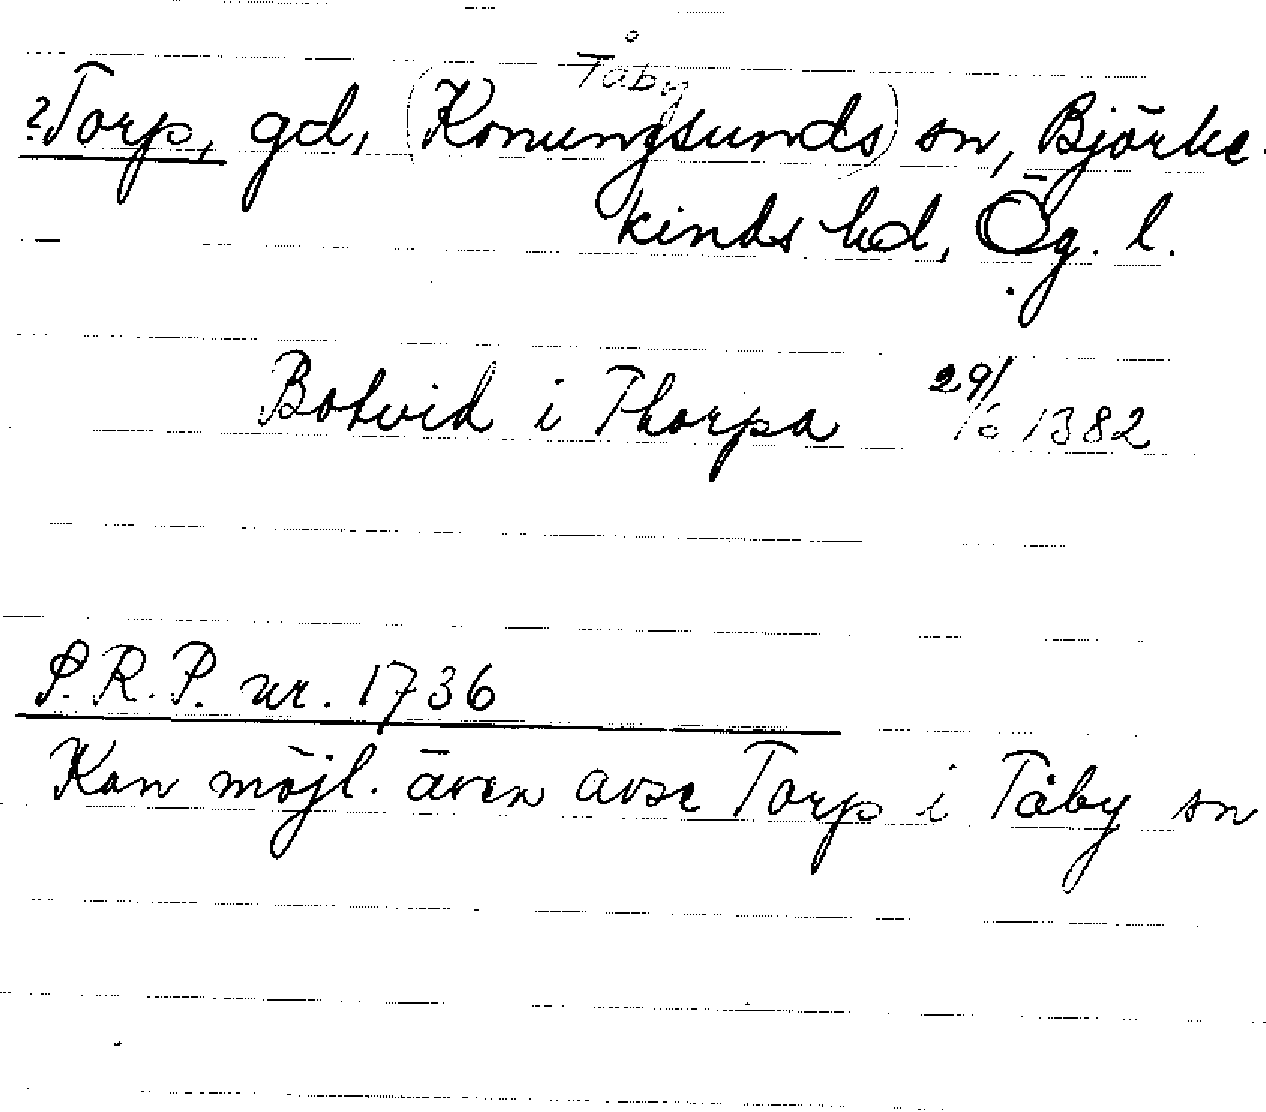 Täby
?Torp, gd, (Konungsunds) sn, Björke-
kinds hd, Ög. l.
Botvid i Thorpa 29/6 1382
S.R.P. nr. 1736
Kan möjl. även avse Torp i Tåby sn